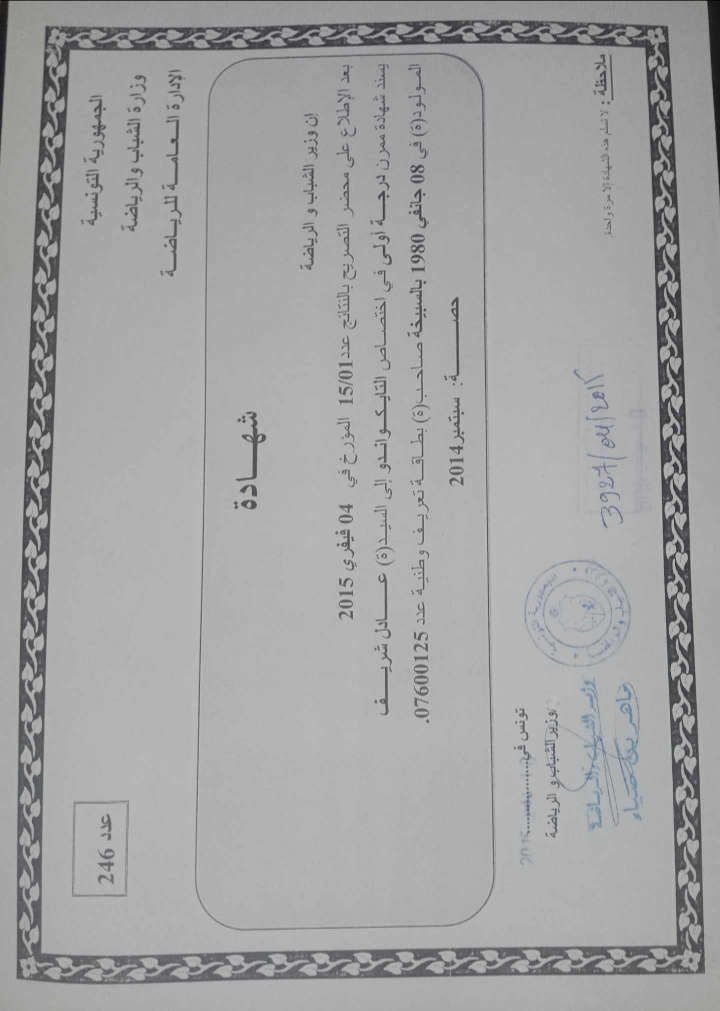 الجمهورية التونسية
وزارة الشباب والرياضة
الإدارة العامة للرياضة
عدد 246
شهادة
إن وزير الشباب و الرياضة
بعد الإطلاع على محضر التصريح بالنتائج عدد 15/01 المؤرخ في 04 فيفري 2015
يسند شهادة ممرن درجة أولى في اختصاص التايكواندو إلى السيد(ة) عادل شريف
المولود(ة) في 08 جانفي 1980 بالسبيخة صاحب(ة) بطاقة تعريف وطنية عدد 07600125.
حصة: سبتمبر 2014
تونس في
وزير الشباب و الرياضة
وزير الشباب والرياضة
ماهر بن ضياء
3927/04/2015
ملاحظة : لا تسلم هذه الشهادة إلا مرة واحدة.